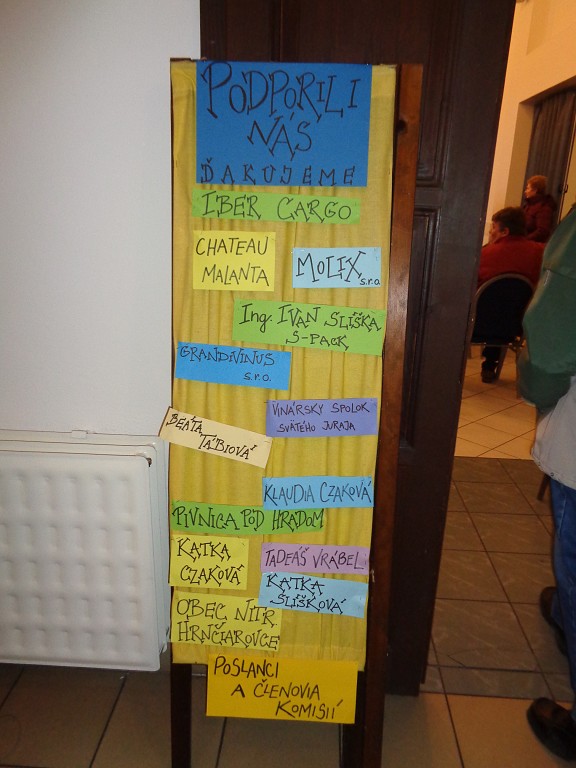 PODPORILI
NÁS
ĎAKUJEME
IBER CARGO
CHATEAU
MALANTA
MOLIX
s.r.o.
Ing. IVAN SLIŠKA
S-PACK
GRANDIVINUS
s.r.o.
VINÁRSKY SPOLOK
SVÄTÉHO JURAJA
BEÁTA
TÁBIOVÁ
KLAUDIA CZAKOVÁ
PIVNICA POD HRADOM
KATKA
CZAKOVÁ
TADEÁŠ VRÁBEL
KATKA
SLIŠKOVÁ
OBEC NITR.
HRNČIAROVCE
POSLANCI
A ČLENOVIA
KOMISIÍ